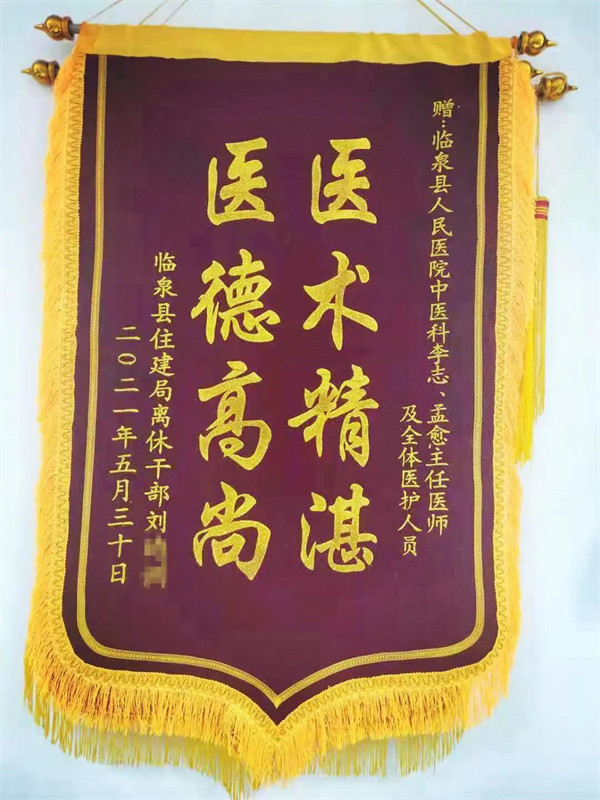 赠:临泉县人民医院中医科李志、孟愈主任医师
及全体医护人员
医术精湛
医德高尚
临泉县住建局离休干部刘
二〇二一年五月三十日